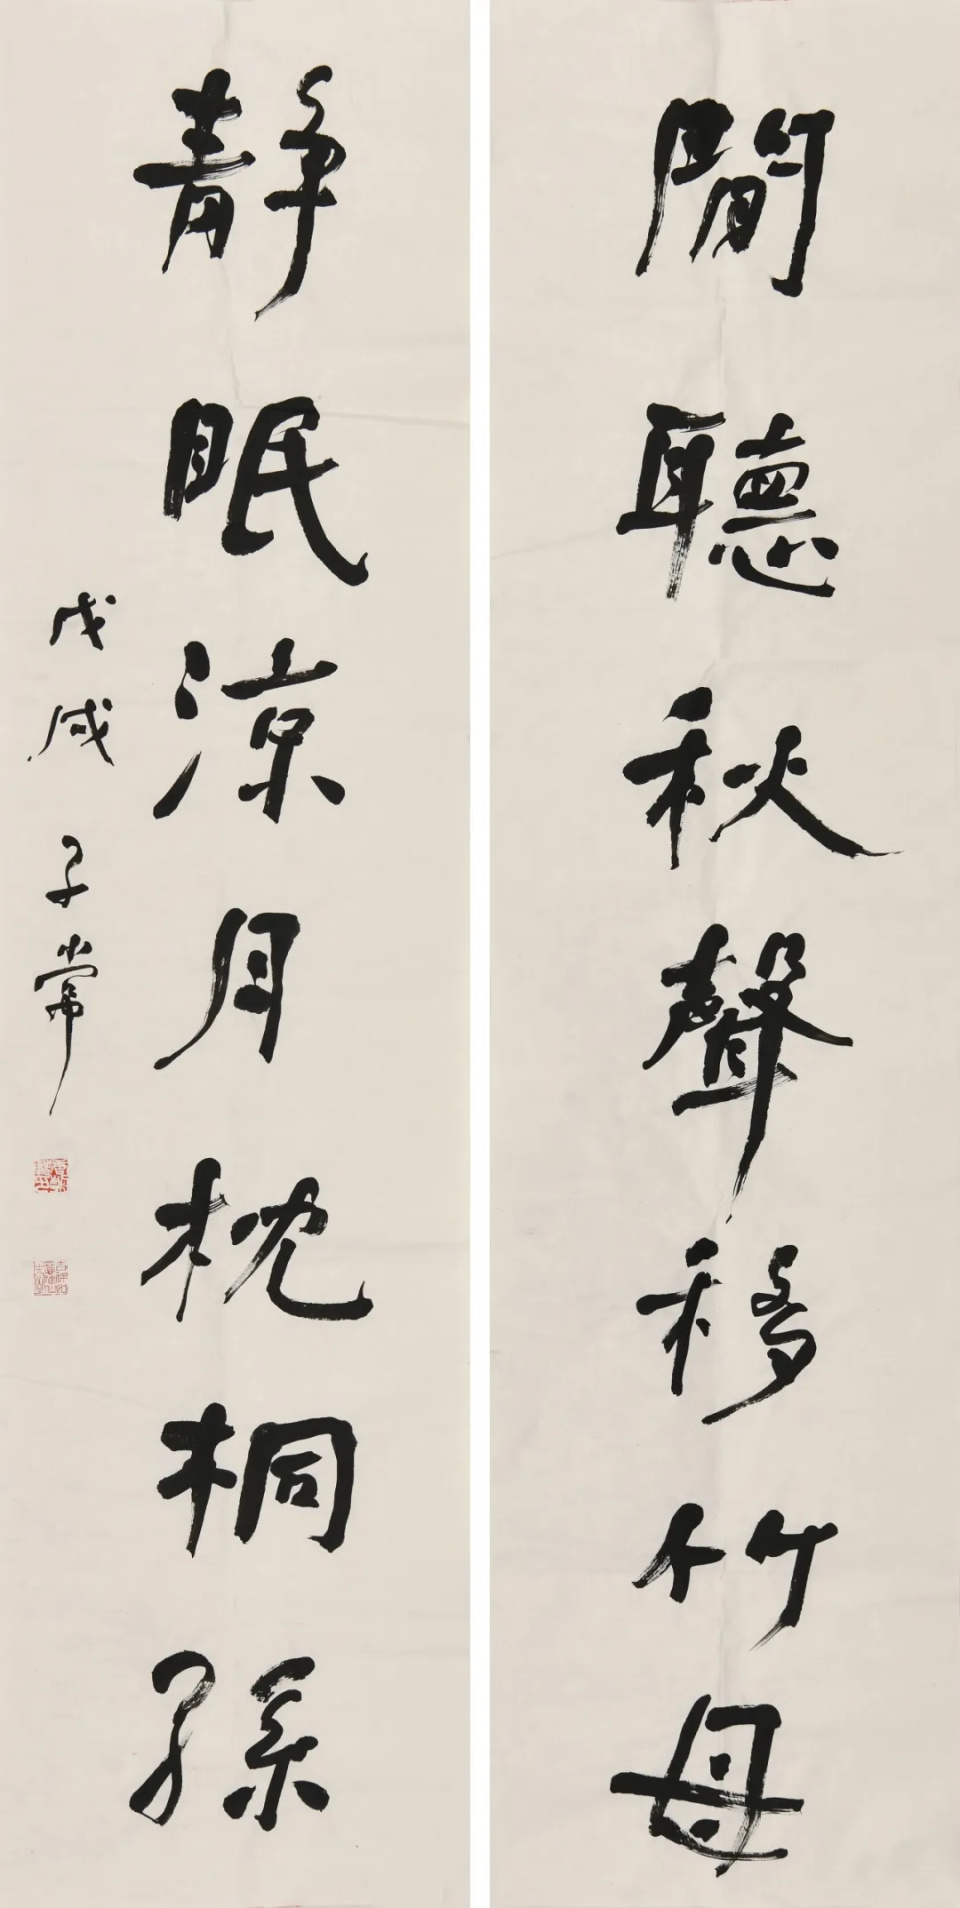 閒聽秋聲移竹母
靜眠涼月枕桐孫
戊戌子常